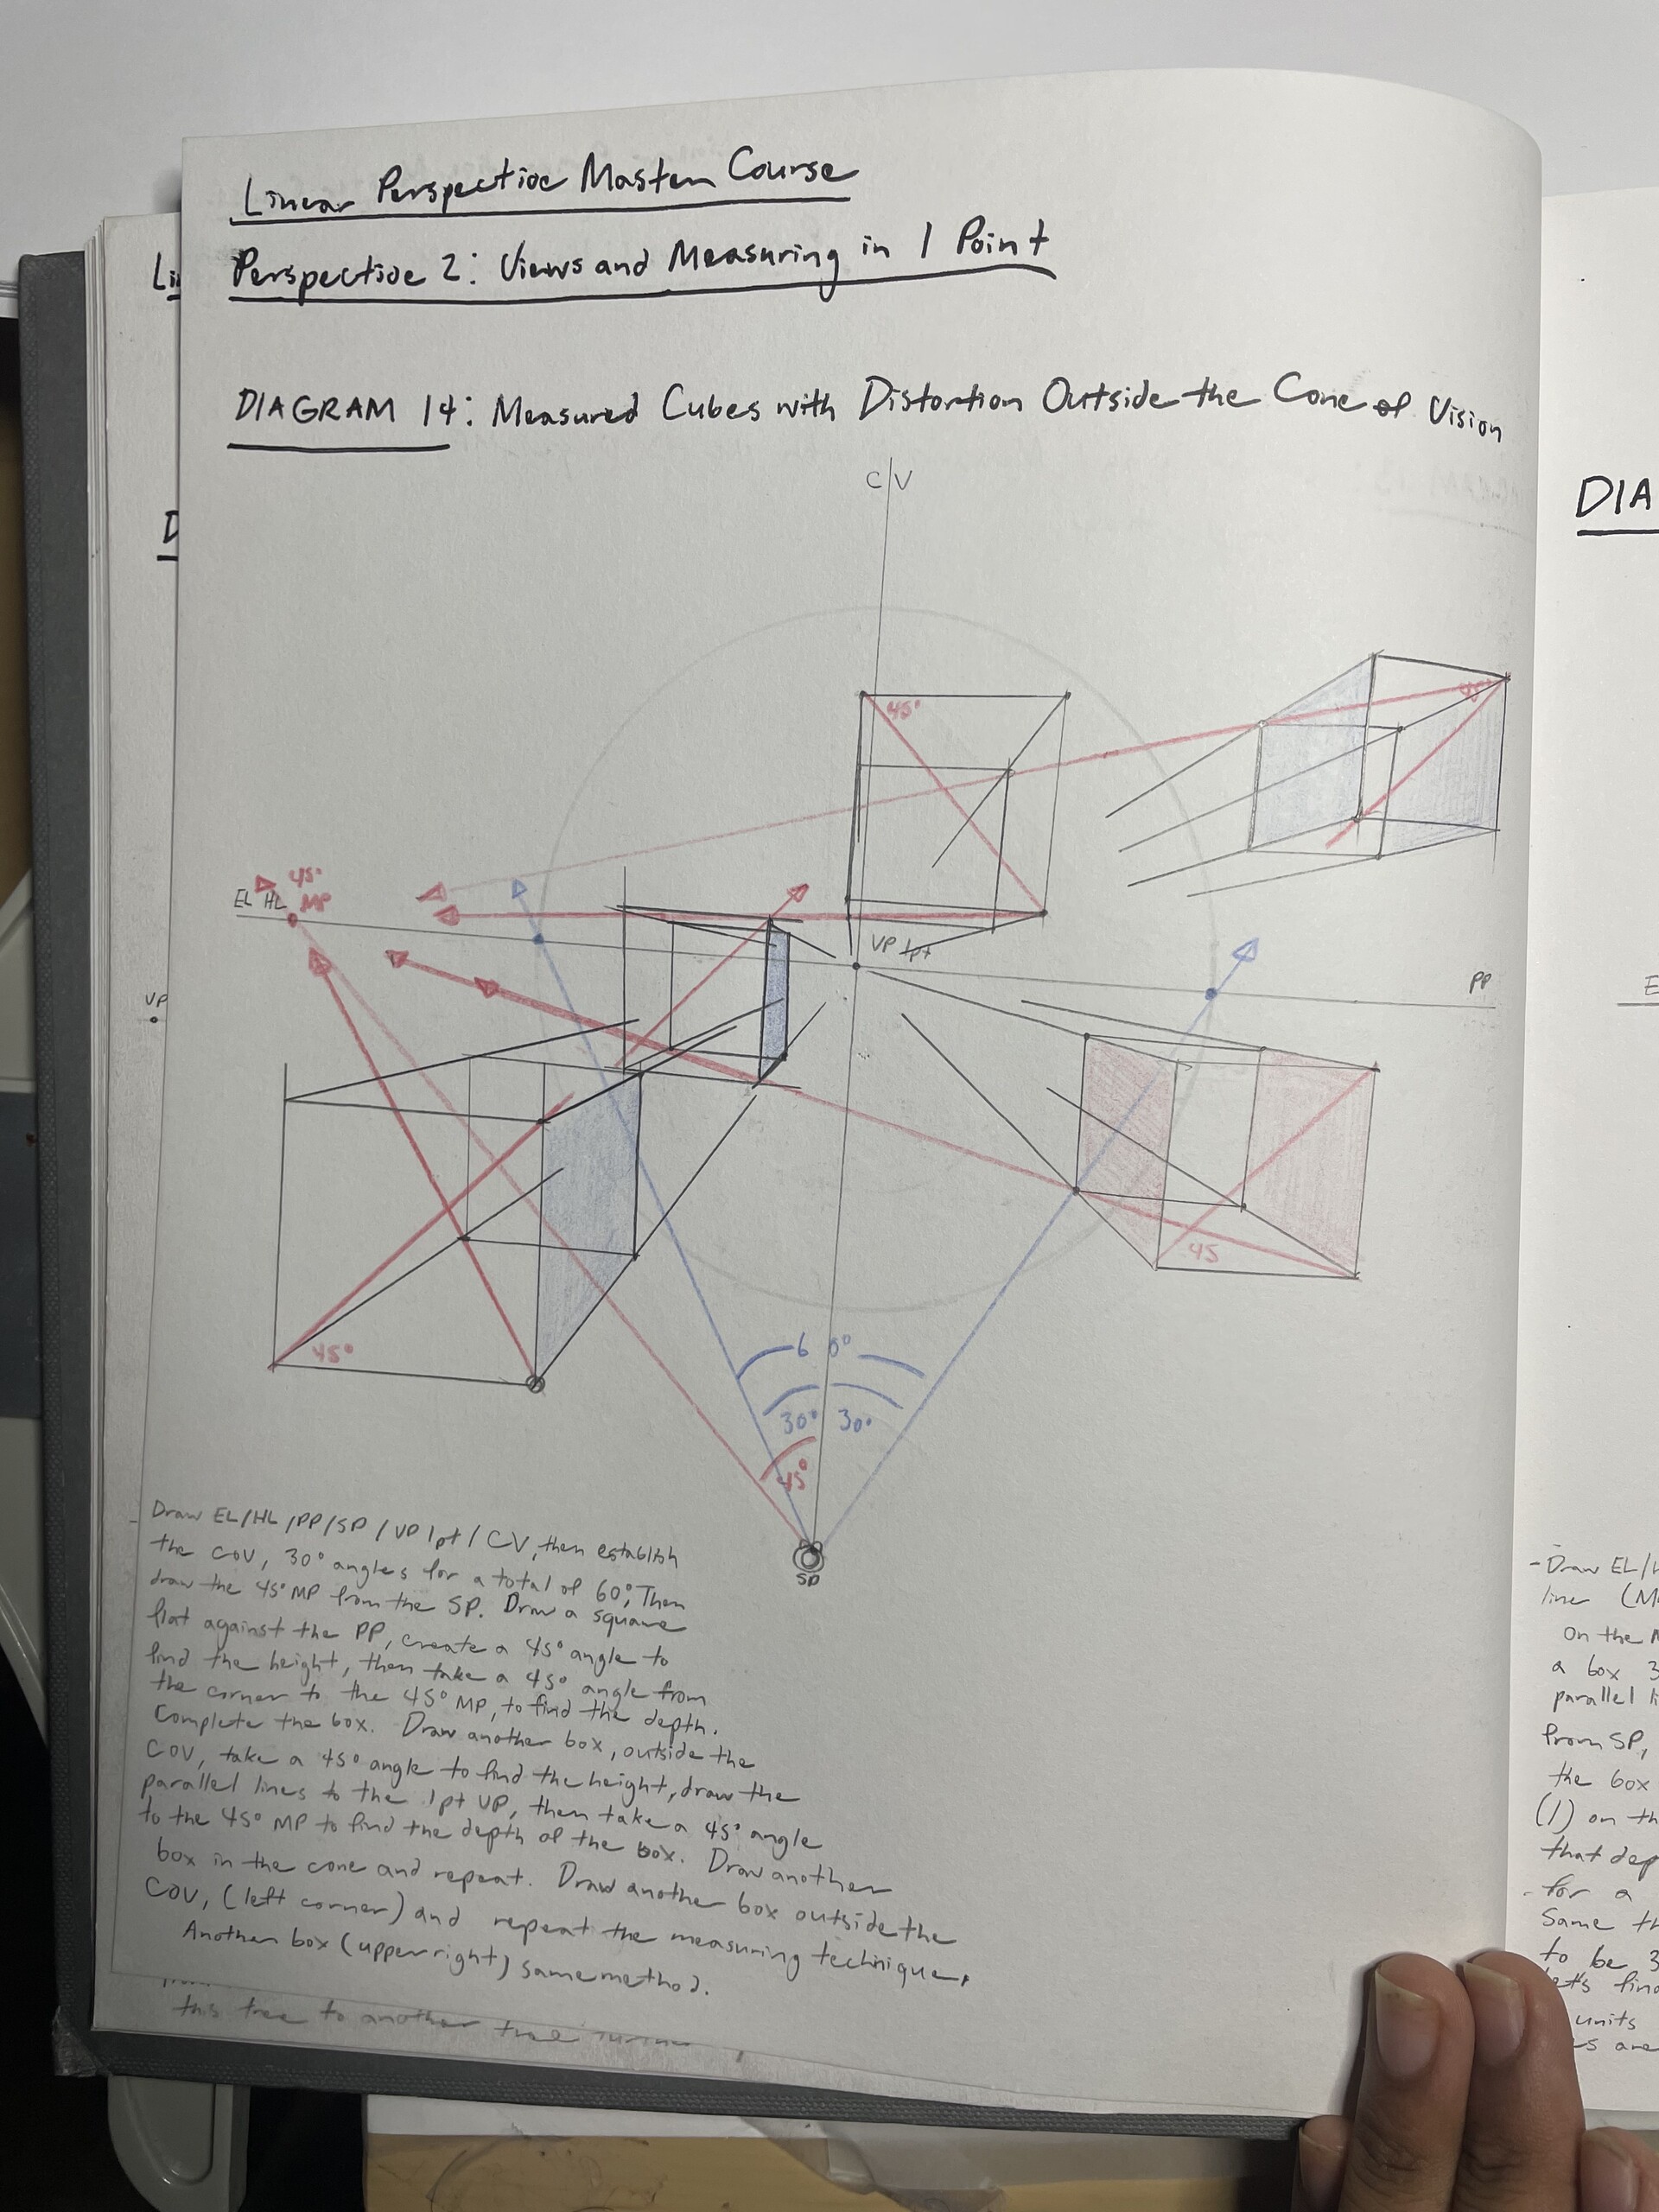 Linear Perspective Master Course
Perspective 2: Views and Measuring in 1 Point
DIAGRAM 14: Measured Cubes with Distortion Outside the Cone of Vision
C V
45°
45°
45°
MP
EL HL
VP 1pt
PP
45
45°
60°
30° 30°
45°
SP
Draw EL/HL/PP/SP/VP 1pt/CV, then establish
the COV, 30° angles for a total of 60°, Then
draw the 45° MP from the SP. Draw a square
flat against the PP, create a 45° angle to
find the height, then take a 45° angle from
the corner to the 45° MP, to find the depth.
Complete the box. Draw another box, outside the
COV, take a 45° angle to find the height, draw the
parallel lines to the 1pt VP, then take a 45° angle
to the 45° MP to find the depth of the box. Draw another
box in the cone and repeat. Draw another box outside the
COV, (left corner) and repeat the measuring technique,
Another box (upper right) same method.
this tree to another tree
Li
D
VP
DIA
E
-Draw EL/
line (M
on the M
a box 3
parallel li
from SP,
the box
(1) on th
that dep
- for a
Same th
to be 3
let's find
units
s are